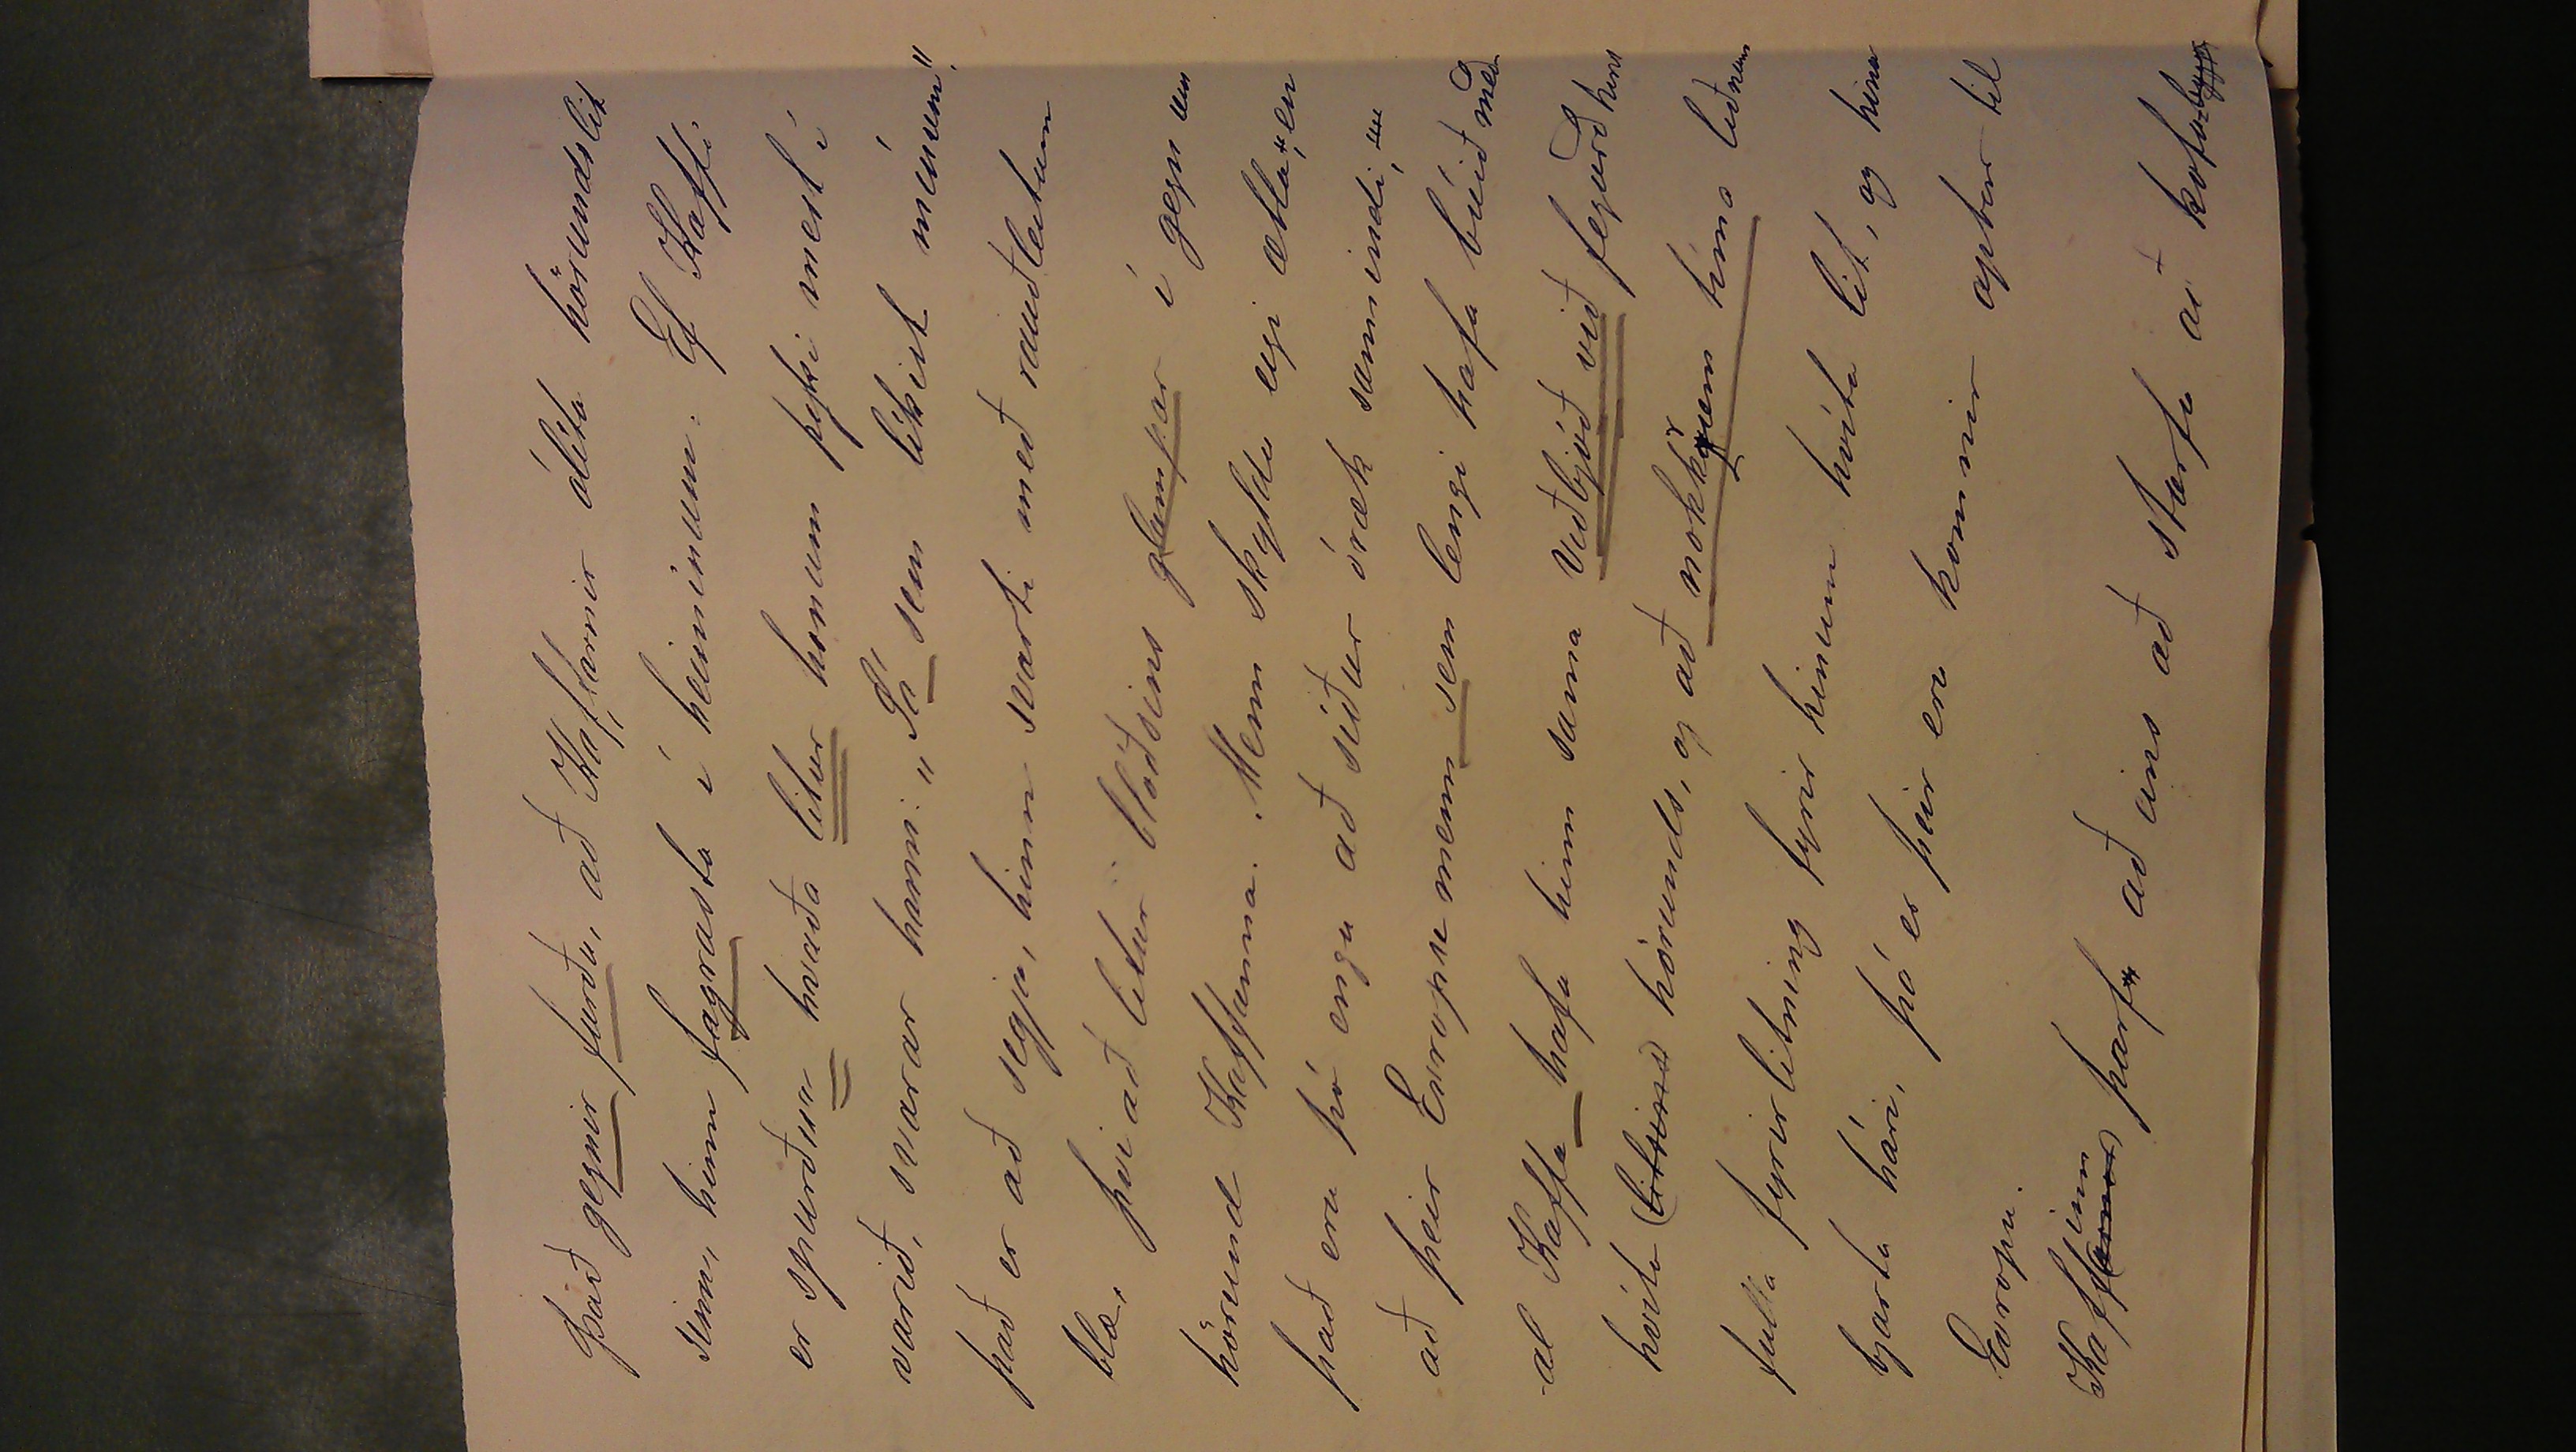 Það gegnir furðu, að Kaffarnir álíta hörundslit
sinn, hinn fagrasta í heiminum. Ef Kaffi
er spurður hvaða litur honum þyki mest í
varið, svarar hann: „Sá sem líkist mínum“,
það er að segja, hinn svarti með rauðleitum
blæ, því að litur blóðsins glampar í gegn um
hörund Kaffanna. Menn skyldu eigi ætla, en
það eru þó engu að síður óræk sannindi,
að þeir Evropumenn sem lengi hafa búið með
al Kaffa hafa hinn sama viðbjóð við fegurð hins
hvíta (litsins hörunds, og að nokkrum tíma liðnum
fulla fyrirlitning fyrir hinum hvíta lit, og hinu
bjarta hári, þó er þeir eru komnir aptur til
Evropu.
Kaffinn þarf að eins að starfa að kofa